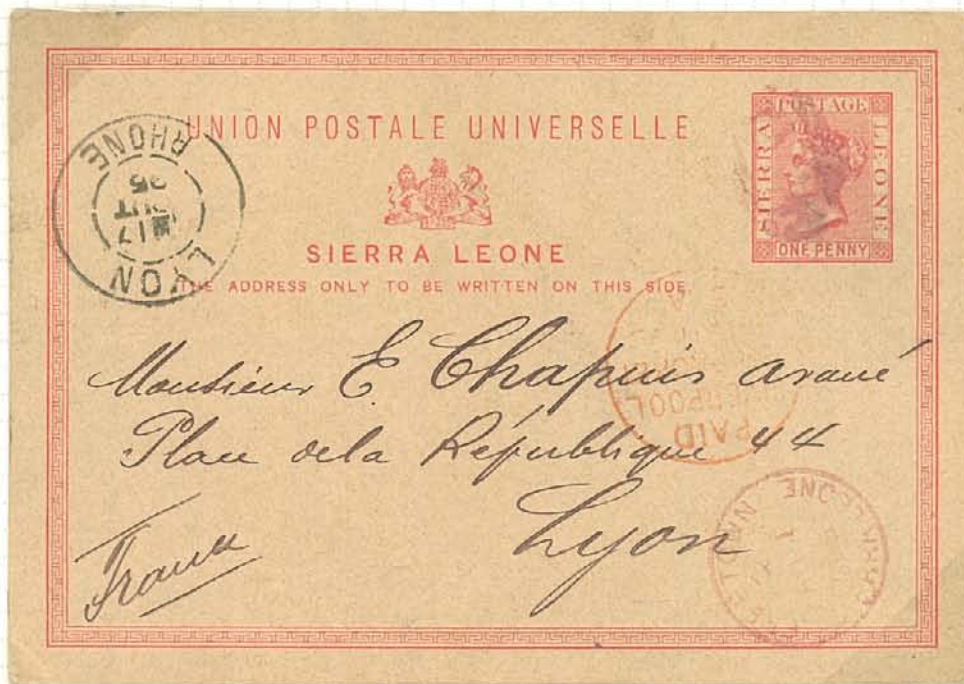 UNION POSTALE UNIVERSELLE
SIERRA LEONE
THE ADDRESS ONLY TO BE WRITTEN ON THIS SIDE.
POSTAGE
SIERRA
LEONE
ONE PENNY
LYON
17
RHONE
PAID
LIVERPOOL
Monsieur E. Chapuis avoué
Place de la République 44
Lyon
France